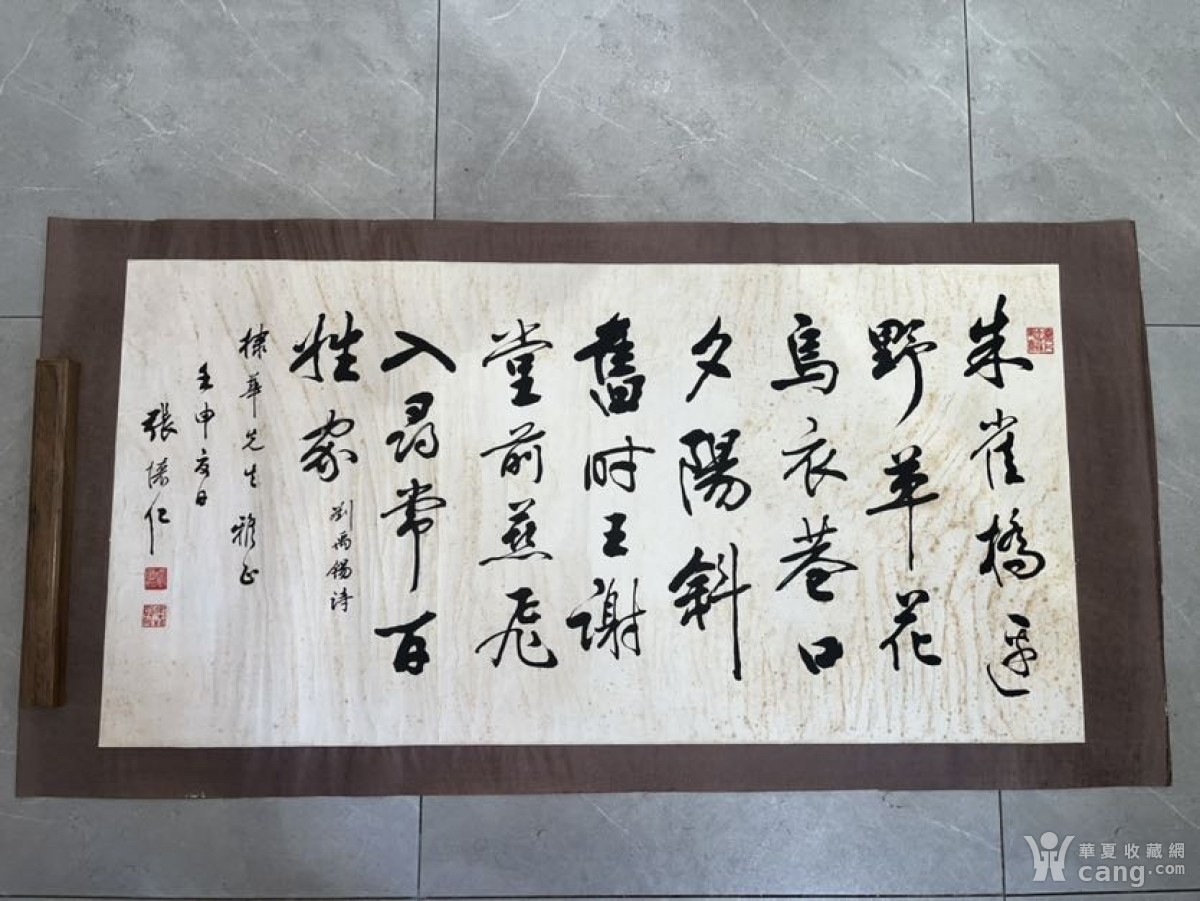 朱雀橋邊
野草花
烏衣巷口
夕陽斜
舊时王謝
堂前燕飛
入尋常百
姓家
劉禹锡诗
棣華先生雅正
壬申夏日
張仁
華夏收藏網
cang.com